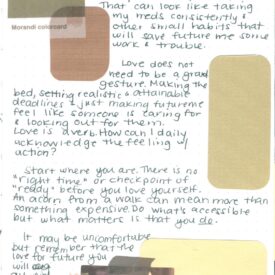 That can look like taking
my meds consistently &
Morandi colorcard
other small habits that
will save future me some
work & trouble.
Love does not
need to be a grand
gesture. Making the
bed, setting realistic & attainable
deadlines & just making future me
feel like someone is caring for
& looking out for them.
Love is a verb. How can I daily
acknowledge the feeling w/
action?
Start where you are. There is no
"right time" or checkpoint of
"ready" before you love yourself.
An acorn from a walk can mean more than
something expensive. Do what's accessible
but what matters is that you do.
It may be uncomfortable
but remember that the
love for future you
will